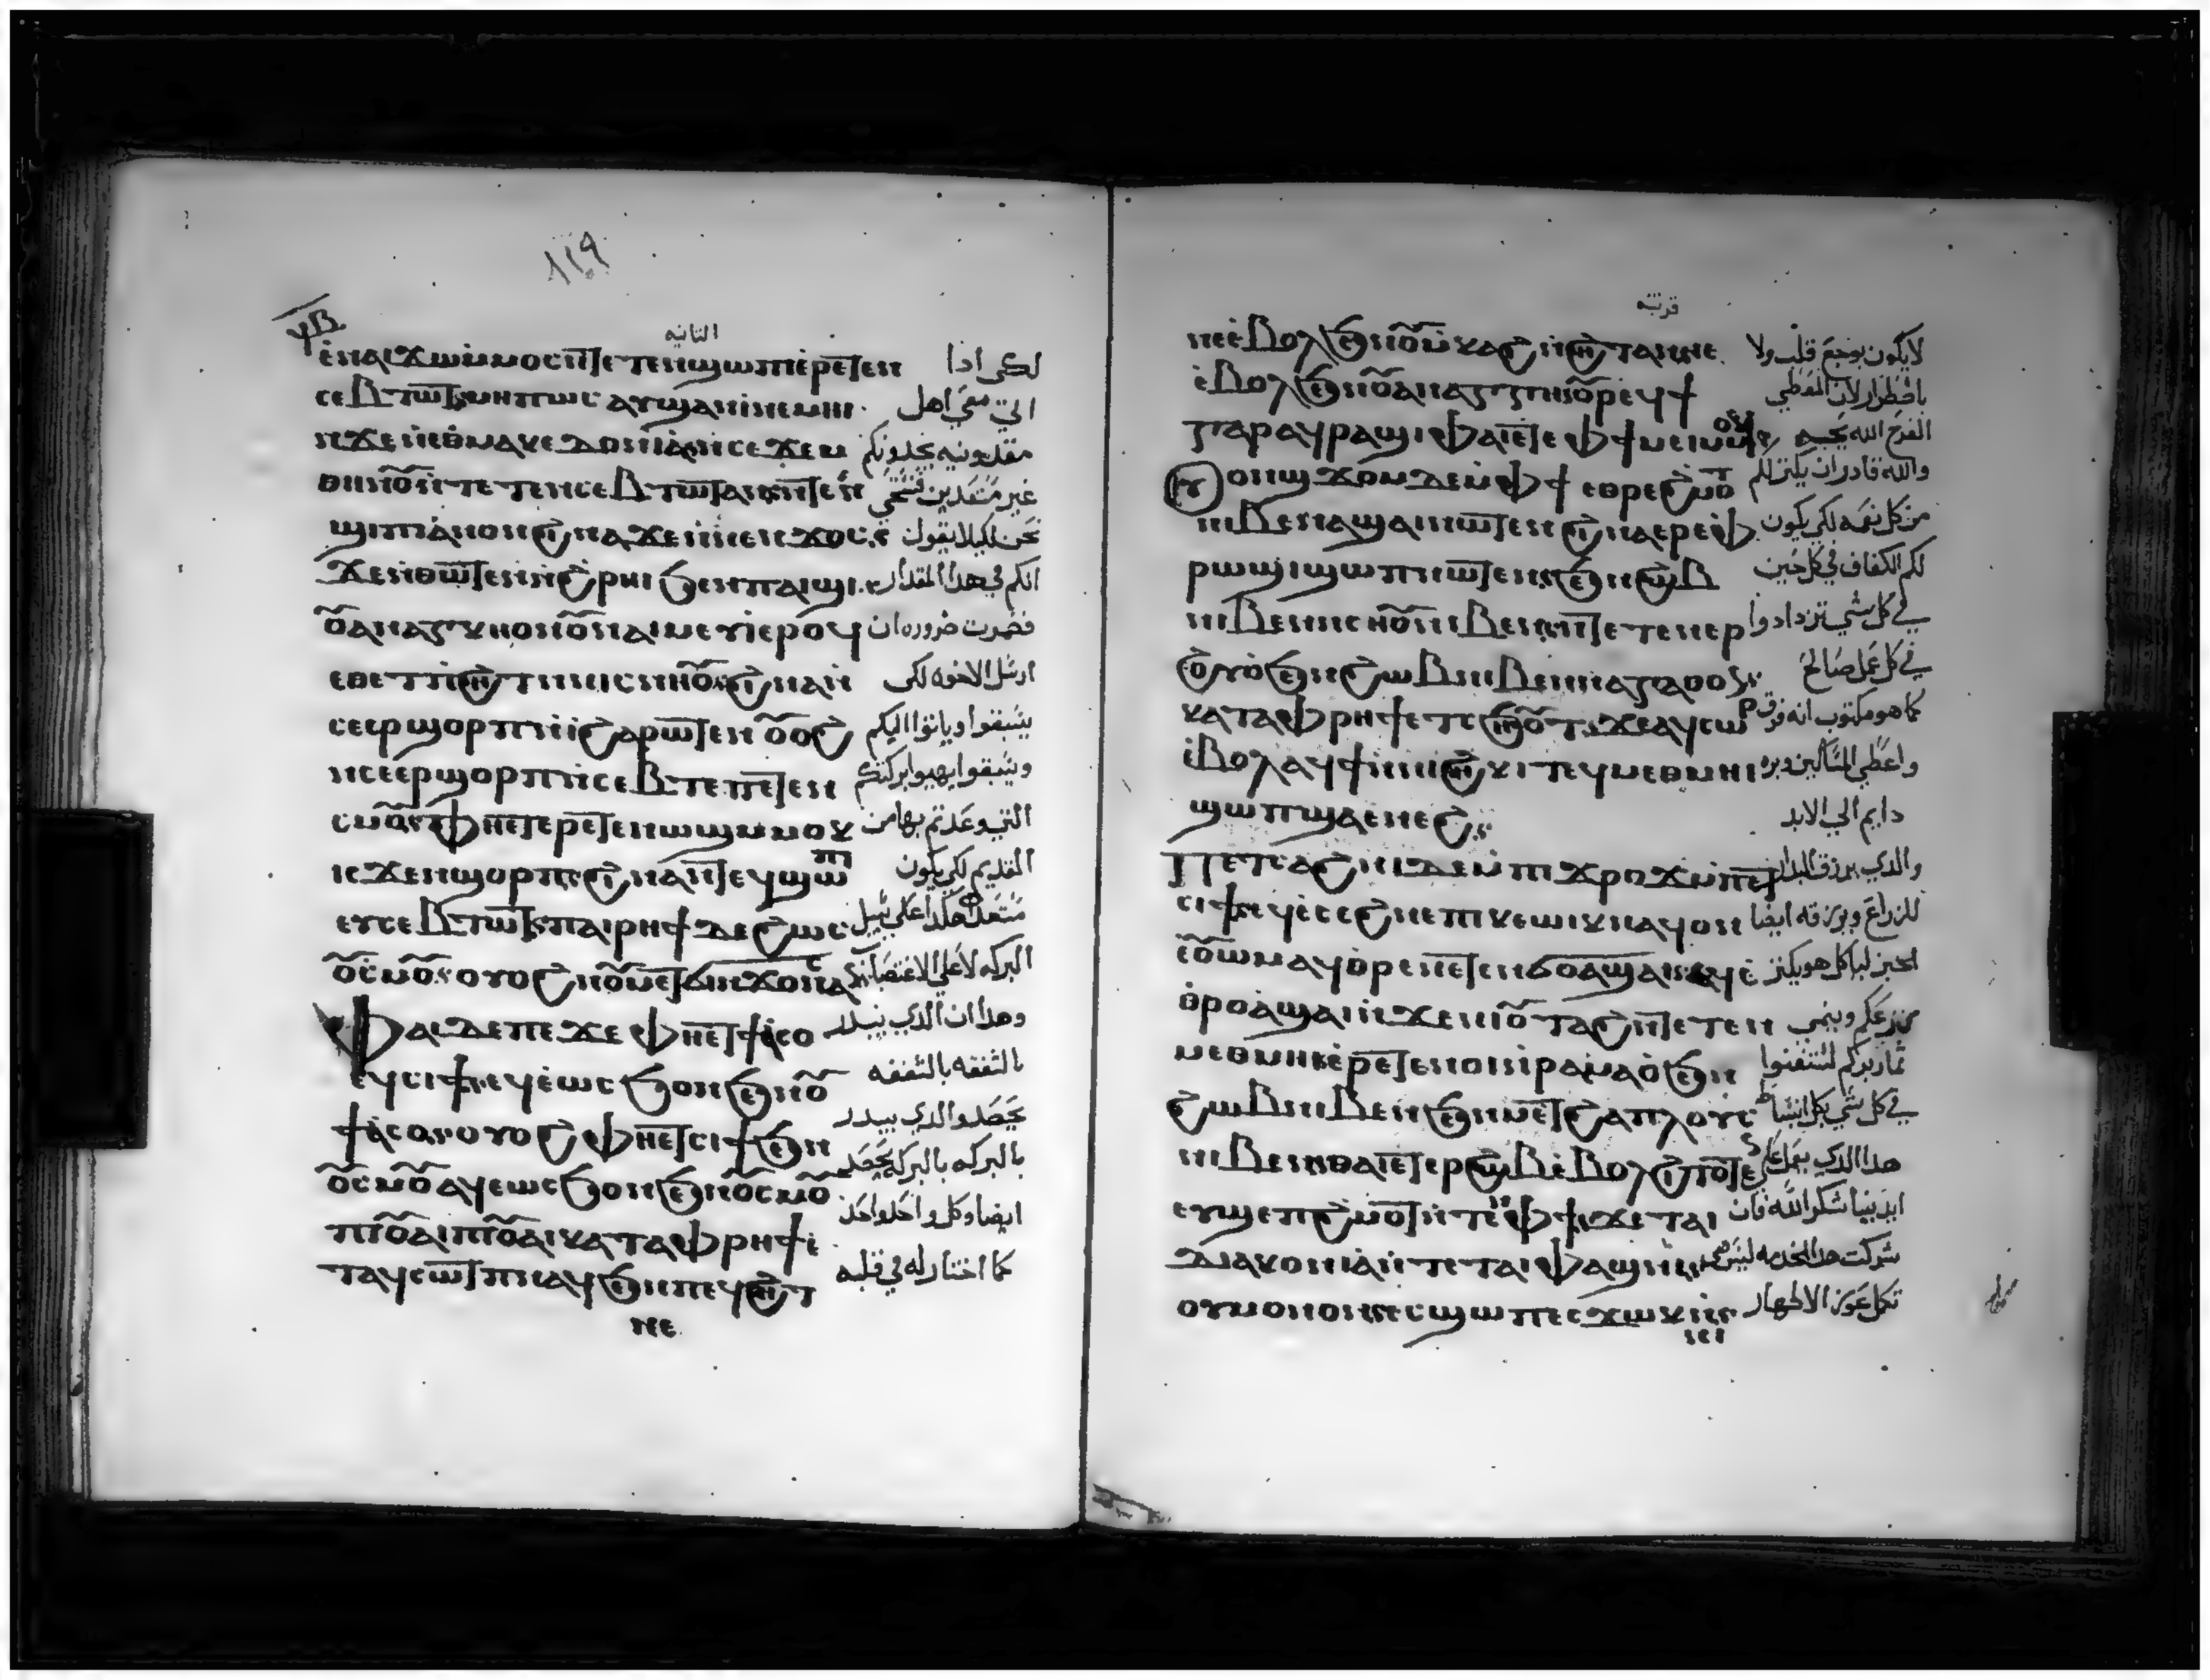 ١١٩
التانيه
ⲉⲛⲁⲓϫⲱⲙⲙⲟⲥ ⲛ̅ⲧⲉⲧⲉⲛϣⲱⲡⲓ ⲉⲣⲉ̅ⲧⲉⲛ لكى اذا
ⲥⲉⲃⲧⲱ̅ⲧ ⲙⲏⲡⲱⲥ ⲁⲩϣⲁⲛⲓ ⲛⲉⲙⲏⲓ اتى معى اهل
ⲛϫⲉⲛⲓⲑⲙⲁⲕⲉⲇⲟⲛⲓⲁ ⲛⲥⲉϫⲉⲙ مقدونيه يجدونكم
ⲑⲏⲛⲟ̅ⲩ ⲛⲧⲉⲧⲉⲛⲥⲉⲃⲧⲱ̅ⲧ ⲁⲛ ⲛ̅ⲧⲉⲛ غير مستعدين فنستحى
ϣⲓⲡⲓ ⲁⲛⲟⲛ ϩⲓⲛⲁ ϫⲉ ⲛⲛⲉⲛϫⲟⲥ نحن لكيلا يقول
ϫⲉ ⲛⲑⲱ̅ⲧⲉⲛ ⲛϩⲣⲏⲓ ϧⲉⲛ ⲡⲁⲓϣⲓ انكم فى هدا المقدار
ⲟ̅ⲩⲁⲛⲁⲅⲕⲏ ⲟⲛ ⲟ̅ⲩⲛ ⲁⲓⲙⲉⲩⲓ ⲉⲣⲟϥ فصرت ضروره ان
ⲉⲑⲉⲧⲡϩⲏⲧ ⲛⲛⲓⲥⲛⲏⲟ̅ⲩ ϩⲓⲛⲁ ⲛ ارسل الاخوه لكى
ⲥⲉⲉⲣϣⲟⲣⲡ ⲛⲓ ϩⲁⲣⲱ̅ⲧⲉⲛ ⲟ̅ⲩⲟϩ يسبقوا وياتوا اليكم
ⲛⲥⲉⲉⲣϣⲟⲣⲡ ⲛⲥⲉⲃⲧⲉ ⲡⲉ̅ⲧⲉⲛ ويسبقوا يهيوا بركتكم
ⲥⲙⲟ̅ⲩ ⲫⲏⲉ̅ⲧⲉⲣⲉ̅ⲧⲉⲛⲱϣ ⲙⲙⲟϥ التى وعدتم بها من
ⲓⲥϫⲉⲛϣⲟⲣⲡ ϩⲓⲛⲁ ⲛ̅ⲧⲉϥϣⲱⲡⲓ القديم لكى يكون
ⲉϥⲥⲉⲃⲧⲱ̅ⲧ ⲙⲡⲁⲓⲣⲏϯ ⲇⲉ ϩⲱⲥ مستعدا هكدا على سبيل
ⲟ̅ⲩⲥⲙⲟ̅ⲩ ⲟⲩⲟϩ ⲛⲟ̅ⲩⲙⲉ̅ⲧϭⲛϫⲟⲛⲥ ⲁⲛ البركه لا على الاغتصاب
ⲫⲁⲓ ⲇⲉ ⲡⲉ ϫⲉ ⲫⲏⲉ̅ⲧϯⲁⲥⲟ وهدا ان الدي يبدر
ⲉϥⲥⲓϯ ⲉϥⲉⲱⲥϧ ⲟⲛ ϧⲉⲛ ⲟ̅ⲩ بالشفقه بالشفقه
ϯⲁⲥⲟ ⲟⲩⲟϩ ⲫⲏⲉ̅ⲧⲥⲓϯ ϧⲉⲛ يحصد والدي يبدر
ⲟ̅ⲩⲥⲙⲟ̅ⲩ ⲁϥⲉⲱⲥϧ ⲟⲛ ϧⲉⲛ ⲟ̅ⲩⲥⲙⲟ̅ⲩ بالبركه بالبركه يحصد
ⲡⲓⲟ̅ⲩⲁⲓ ⲡⲓⲟ̅ⲩⲁⲓ ⲕⲁⲧⲁ ⲫⲣⲏϯ ⲉ ايضا وكل واحد واحد
ⲧⲁϥⲥⲱ̅ⲧⲡ ⲛⲁϥ ϧⲉⲛ ⲡⲉϥϩⲏⲧ كما اختار له فى قلبه
ⲛⲉ
قرنتيه
ⲛⲉⲉⲃⲟⲗϧⲉⲛⲟ̅ⲩⲙⲕⲁϩ ⲛϩⲏⲧ ⲁⲛ ⲛⲉ لا يكون بوجع قلب ولا
ⲉⲃⲟⲗϧⲉⲛⲟ̅ⲩⲁⲛⲁⲅⲅⲏ ⲟ̅ⲩⲣⲉϥϯ باضطرار لان المعطي
ⲅⲁⲣ ⲁϥⲣⲁϣⲓ ⲫⲁⲓⲉ̅ⲧⲉ ⲫϯ ⲙⲉⲓ ⲙⲙⲟϥ الفرح الله يحبه
ⲟⲩⲟⲛϣϫⲟⲙ ⲇⲉ ⲙⲫϯ ⲉⲑⲣⲉ ϩⲙⲟ̅ⲧ والله قادر ان يكثر لكم
ⲛⲓⲃⲉⲛ ⲁϣⲁⲓ ⲛⲱ̅ⲧⲉⲛ ϩⲓⲛⲁ ⲉⲣⲉ ⲫ من كل نعمه لكى يكون
ⲣⲱϣⲓ ϣⲱⲡ ⲛⲱ̅ⲧⲉⲛ ϧⲉⲛ ϩⲱⲃ لكم الكفاف فى كل حين
ⲛⲓⲃⲉⲛ ⲛⲥⲏⲟ̅ⲩ ⲛⲓⲃⲉⲛ ⲛ̅ⲧⲉⲧⲉⲛⲉⲣ في كل شي تزدادوا
ϩⲟⲩⲟ ϧⲉⲛ ϩⲱⲃ ⲛⲓⲃⲉⲛ ⲛⲁⲅⲁⲑⲟⲛ في كل عمل صالح
ⲕⲁⲧⲁ ⲫⲣⲏϯ ⲉⲧⲥϧⲏⲟ̅ⲩⲧ ϫⲉ ⲁϥⲥⲱⲣ كما هو مكتوب انه فرق
ⲉⲃⲟⲗ ⲁϥϯ ⲛⲛⲓϩⲏⲕⲓ ⲧⲉϥⲙⲉⲑⲙⲏⲓ واعطي المساكين وبره
ϣⲱⲡ ϣⲁ ⲉⲛⲉϩ دايم الي الابد
ⲡⲉⲧⲥⲁϩⲛⲓ ⲇⲉ ⲙⲡⲓϫⲣⲟϫ ⲙⲡⲉ̅ⲧ والدي يرزق البدار
ⲥⲓϯ ⲉϥⲉⲥⲉϩⲛⲉ ⲡⲓⲕⲉⲱⲓⲕ ⲛⲁϥ ⲟⲛ للزراع ويرزقه ايضا
ⲉⲟ̅ⲩⲱⲙ ⲁϥⲑⲣⲉ ⲛⲉ̅ⲧⲉⲛϭⲟ ⲁϣⲁⲓ ⲉϥⲉ الخبز لياكل هو يكثر
ⲑⲣⲟⲩⲁϣⲁⲓ ⲛϫⲉ ⲛⲓⲟ̅ⲩⲧⲁϩ ⲛ̅ⲧⲉⲧⲉⲛ زرعكم وينمى
ⲙⲉⲑⲙⲏⲓ ⲉⲣⲉ̅ⲧⲉⲛⲟⲓ ⲛⲣⲁⲙⲁⲟ ϧⲉⲛ ثمار بركم لتستغنوا
ϩⲱⲃ ⲛⲓⲃⲉⲛ ϧⲉⲛ ⲙⲉ̅ⲧϩⲁⲡⲗⲟⲩⲥ في كل شي بكل
ⲛⲓⲃⲉⲛ ⲑⲁⲓⲉ̅ⲧⲉⲣϩⲱⲃ ⲉⲃⲟⲗϩⲓⲧⲟ̅ⲧⲉⲛ هدا الدي يعمل على
ⲉⲩϣⲉⲡϩⲙⲟ̅ⲧ ⲛⲧⲉ ⲫϯ ϫⲉ ⲧⲁⲓ ايدينا شكر الله فان
ⲇⲓⲁⲕⲟⲛⲓⲁ ⲛⲧⲉ ⲧⲁⲓⲫⲁϣⲛⲓ شركت هدا الخدمه ليس
ⲟⲩⲙⲟⲛⲟⲛ ⲉⲥϣⲱⲡ ⲉⲥϫⲱⲕ تكمل عوز الاطهار